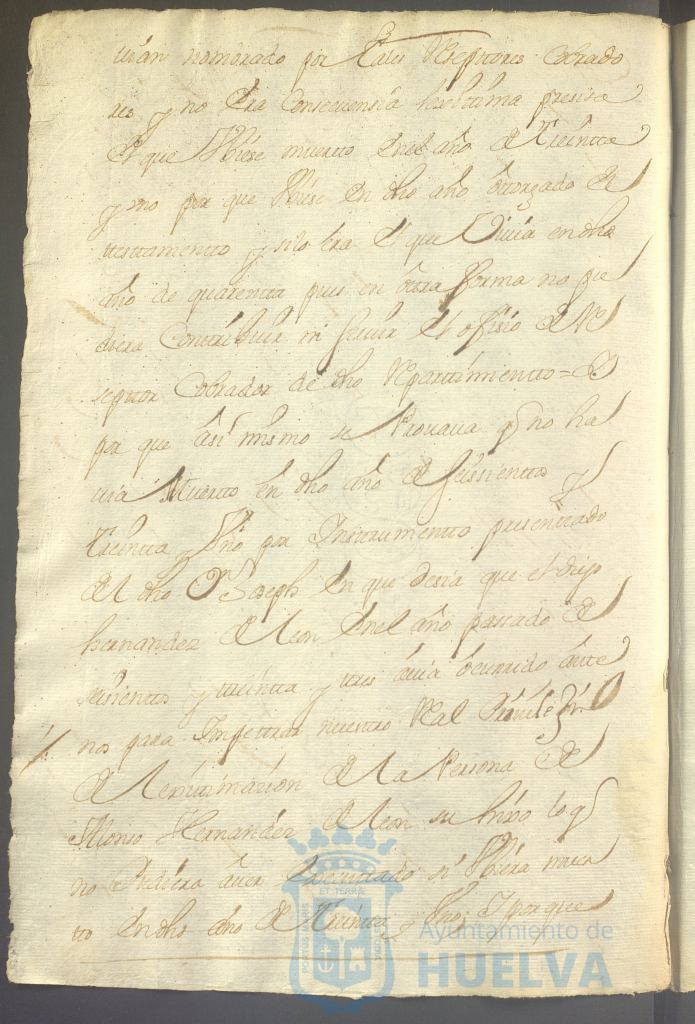 uian nombrado por tales Reseptores Cobrado
res y no era Consecuensia lexitima presisa
el que Vbiese muerto en el año de treinta
y vno por que Vbiese en dho año ôtorgado el
testamento y si lo era el que Viuia en dho
año de quarenta pues en ôtra forma no pu
diera Contribuir ni seruir el ofisio de Re
septor Cobrador de dho Repartimiento = Y
por que asi mismo se Prouaua q no ha
uia Muerto en dho año de seissientos y
treinta y Vno por Instrumento presentado
del dho Dn Joseph en que desia que el dicho
hernandez de Leon en el año passado de
seisientos y treinta y tres auia ôcurrido ânte
nos para Impetrar nuestro Real Priuilexio
de Lexitimasion de la Persona de
Alonso Hernandez de Leon su hixo lo q
no Pudiera auer executado si Vbiera muer
to en dho año de treinta y Vno; Y porque
PORTUS MARIS
ET TERRAE
CUSTODIA
Ayuntamiento de
HUELVA